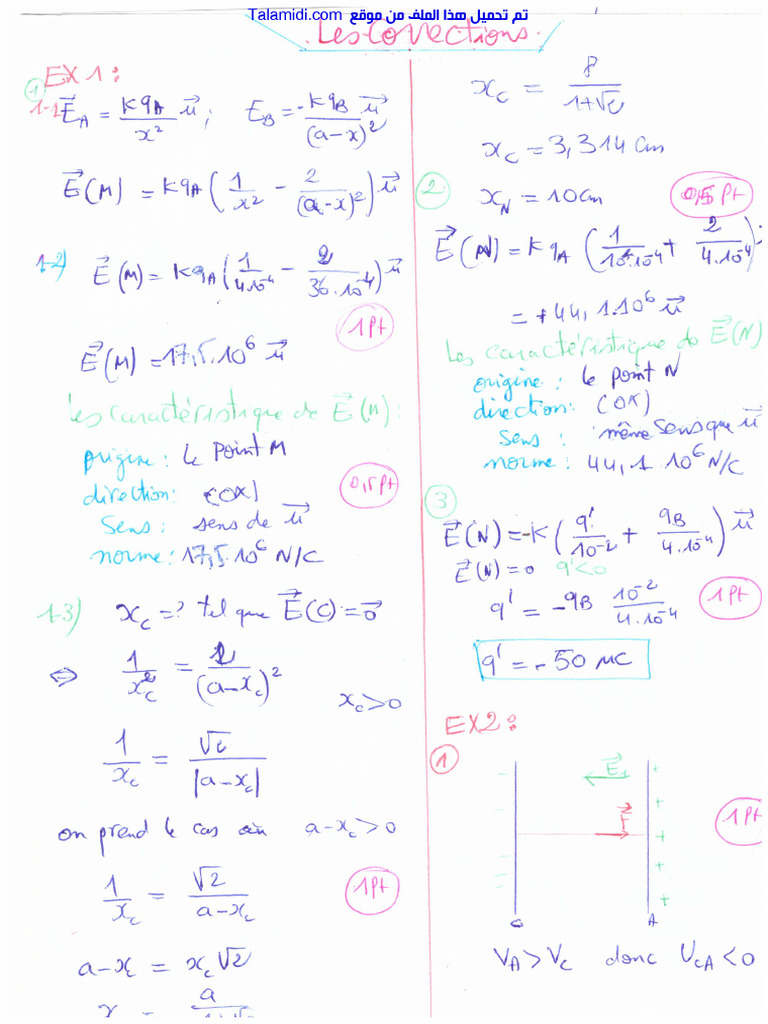 تم تحميل هذا الملف من موقع Talamidi.com
Les Corrections.
EX 1:
1
1-1 E⃗_A = K q_A / x² u⃗ ; E_B = -K q_B / (a-x)² u⃗
E⃗(M) = K q_A (1/x² - 2/(a-x)²) u⃗
1-2) E⃗(M) = K q_A (1/4.10⁻⁴ - 2/36.10⁻⁴) u⃗
1 Pt
E⃗(M) = 17,5.10⁶ u⃗
Les caractéristique de E⃗(M):
origine: le Point M
direction: (OX)
0,5 Pt
Sens: sens de u⃗
norme: 17,5.10⁶ N/C
1-3) x_c = ? tel que E⃗(C) = 0⃗
⇔ 1/x_c² = 2/(a-x_c)²
x_c > 0
1/x_c = √2/|a-x_c|
on prend le cas où a-x_c > 0
1/x_c = √2/(a-x_c)
1 Pt
a-x_c = x_c √2
x_c = 8/(1+√2)
x_c = 3,314 cm
2
x_N = 10 cm
0,5 Pt
E⃗(N) = K q_A (1/10².10⁻⁴ + 2/4.10⁻⁴)
= +44,1.10⁶ u⃗
Les caractéristique de E⃗(N)
origine: le point N
direction: (OX)
Sens: même sens que u⃗
norme: 44,1 10⁶ N/C
3
E⃗(N) = -K (q'/10⁻² + q_B/4.10⁻⁴) u⃗
E⃗(N) = 0 q' < 0
q' = -q_B 10⁻²/4.10⁻⁴
1 Pt
q' = -50 μC
EX2:
1
E⃗₁
F⃗
1 Pt
C A
V_A > V_C donc U_CA < 0